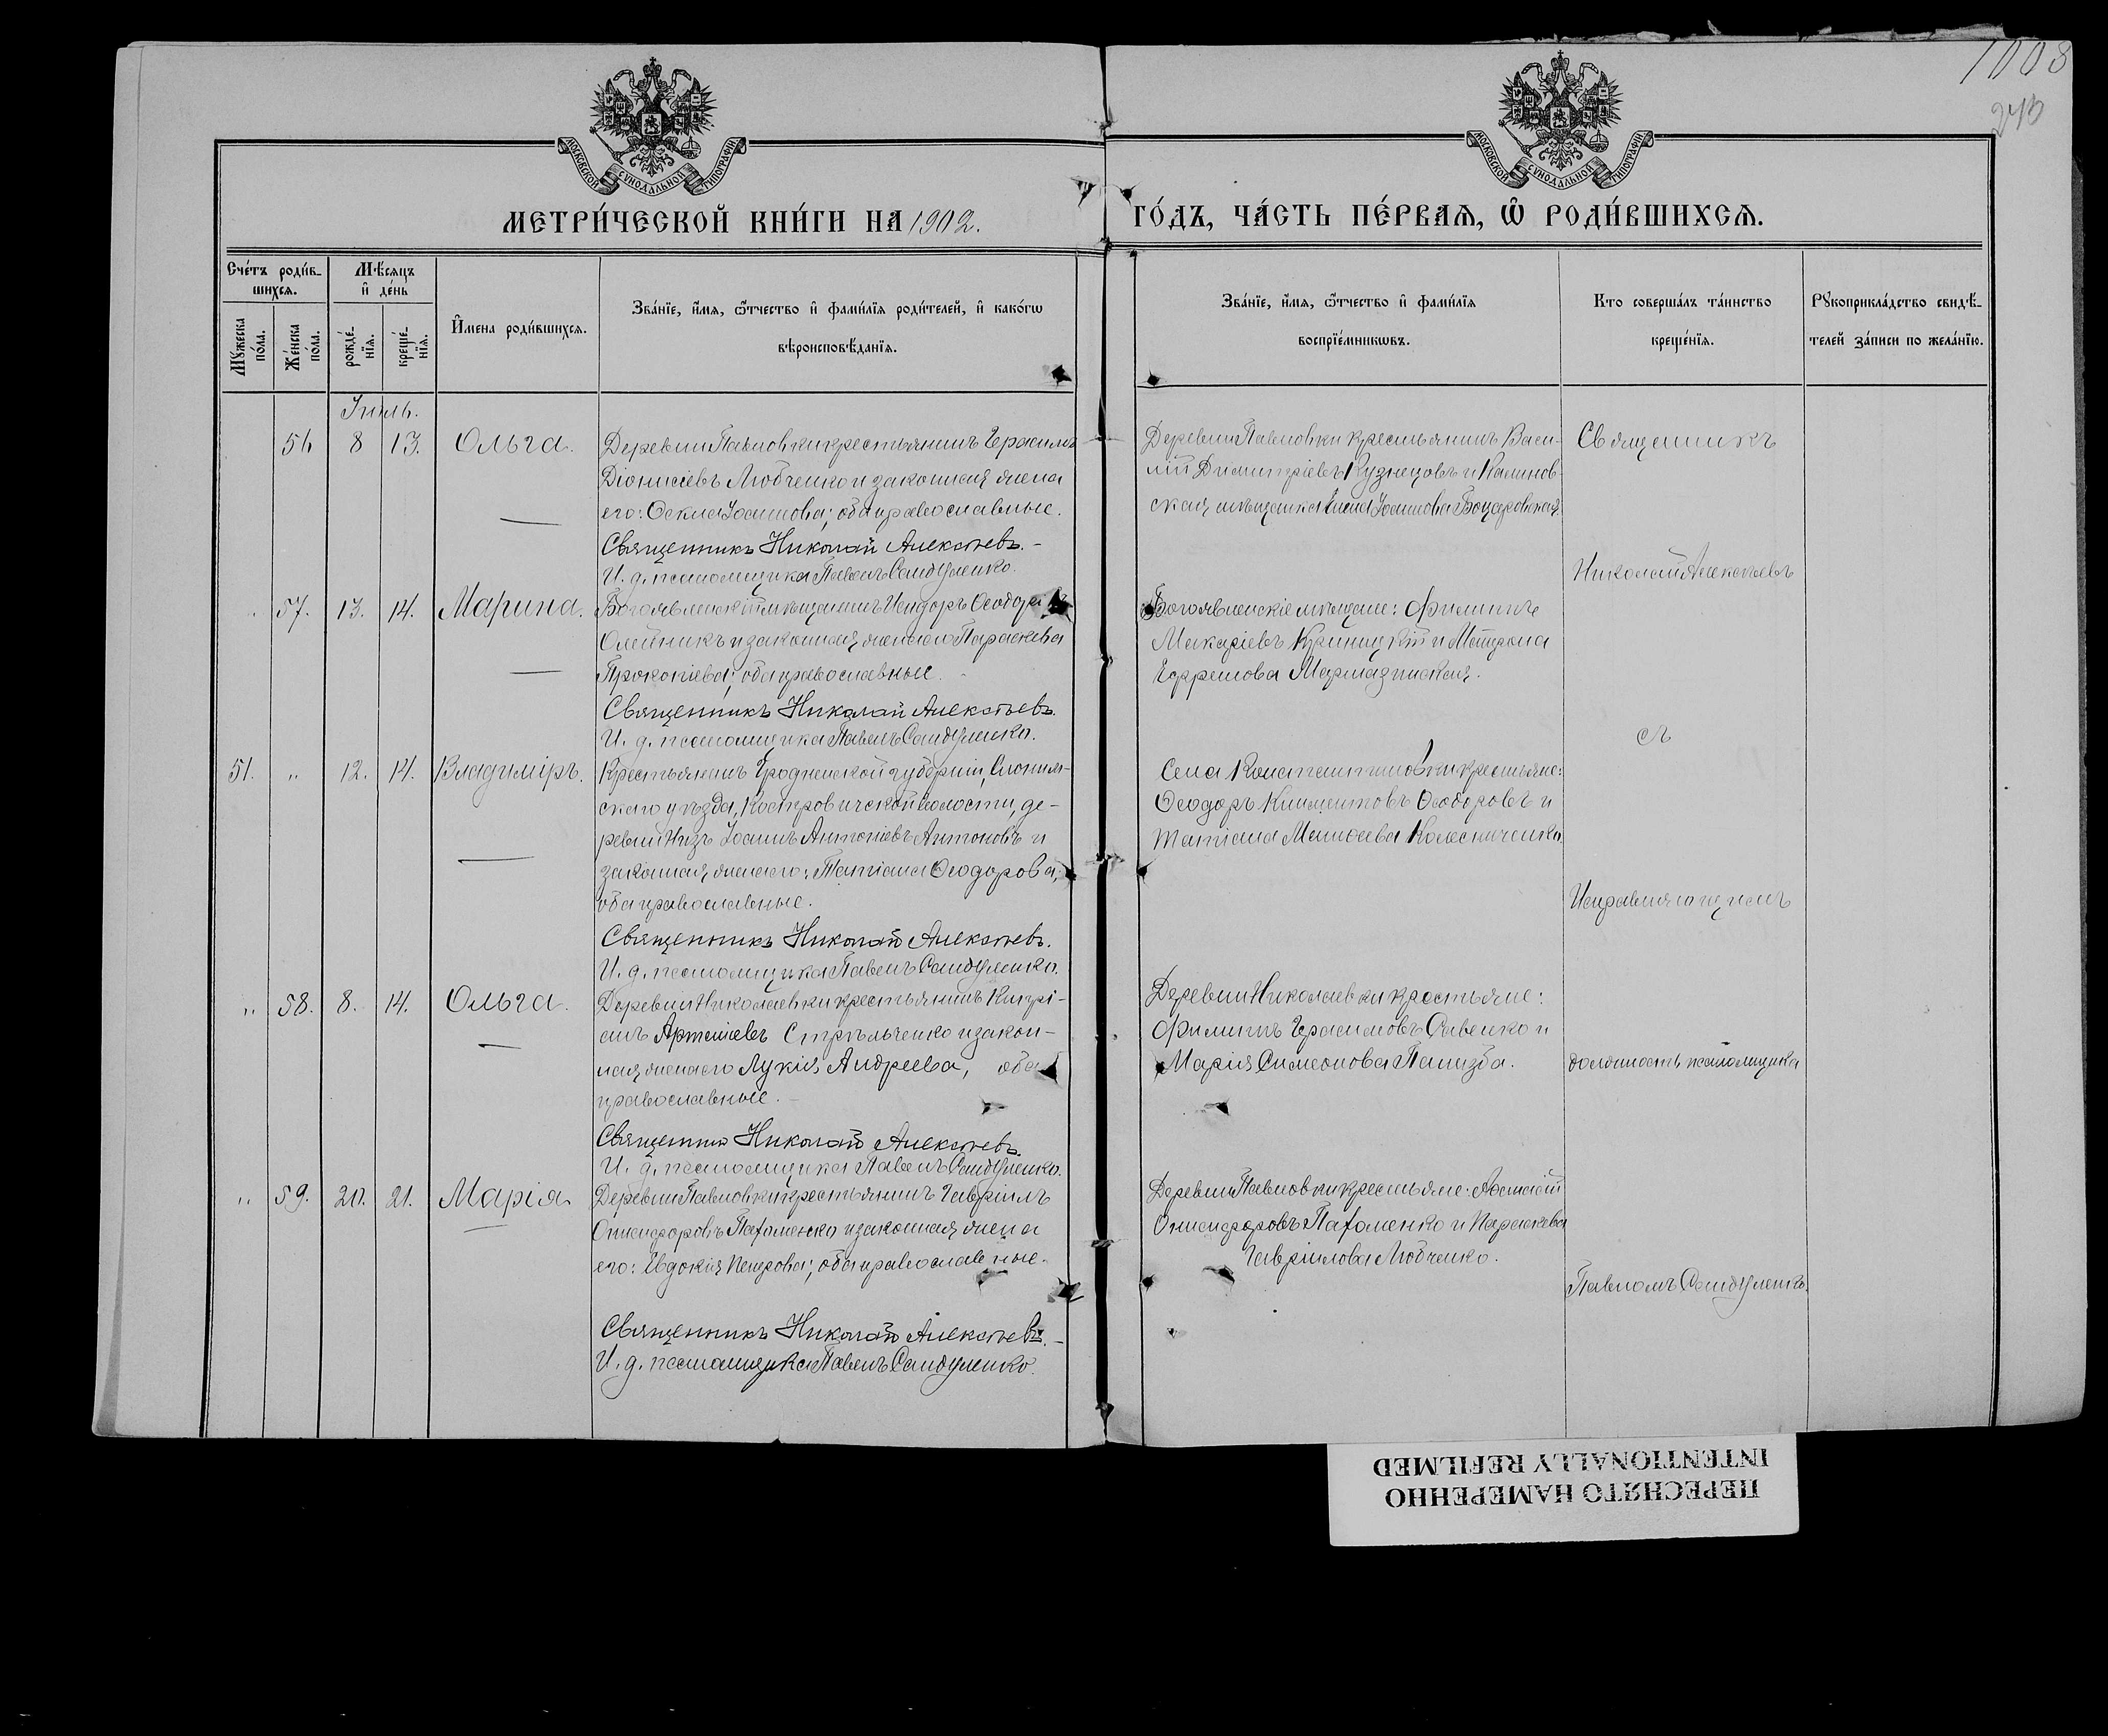 1008
МОСКОВСКОЙ СУНОДАЛЬНОЙ ТИПОГРАФІИ
МОСКОВСКОЙ СУНОДАЛЬНОЙ ТИПОГРАФІИ
МЕТРИ́ЧЕСКОЙ КНИ́ГИ НА 1902.
ГО́ДЪ, ЧА́СТЬ ПЕ́РВАѦ, Ѡ҆ РОДИ́ВШИХСѦ.
Сче́тъ роди́в-
шихсѧ.
Мꙋжеска
по́ла.
Же́нска
по́ла.
Мѣ́сѧцъ
и҆ де́нь
рожде́-
нїѧ.
креще́-
нїѧ.
И҆мена роди́вшихсѧ.
Зва́нїе, и҆́мѧ, ѻ҆́тчество и҆ фами́лїѧ роди́телей, и҆ како́гѡ
вѣроисповѣ́данїѧ.
Зва́нїе, и҆́мѧ, ѻ҆́тчество и҆ фами́лїѧ
воспрїе́мникѡвъ.
Кто соверша́лъ та́инство
креще́нїѧ.
Рꙋкоприкла́дство свидѣ́-
телей за́писи по жела́нїю.
Іюль.
56 8 13. Ольга.
Деревни Павловки крестьянинъ Герасимъ
Діонисіевъ Любченко и законная жена
его: Ѳекла Іоаннова; оба православные.
Священникъ Николай Алексѣевъ.-
И. д. псаломщика Павелъ Сандуленко.
Деревни Павловки крестьянинъ Васи-
лій Димитріевъ Кузнецовъ и Калинов-
ская мѣщанка Елена Іоаннова Боцаровская.
Священникъ
Николай Алексѣевъ
57. 13. 14. Марина.
Богоявленскій мѣщанинъ Исидоръ
Олейникъ и законная жена его Параскева
Прокопіева; оба православные.
Священникъ Николай Алексѣевъ.
И. д. псаломщика Павелъ Сандуленко.
Богоявленскіе мѣщане: Филиппъ
Макаріевъ Криницкій и Матрона
Ефремова
съ
51. " 12. 14. Владиміръ.
Крестьянинъ Гродненской губерніи, Слоним-
скаго уѣзда, Костровичской волости, де-
ревни Низъ Іоаннъ Антоніевъ Антоновъ и
законная жена его: Татіана Ѳеодорова;
оба православные.
Священникъ Николай Алексѣевъ.
И. д. псаломщика Павелъ Сандуленко.
Села Константиновки крестьяне:
Ѳеодоръ Климентовъ Ѳеодоровъ и
Татіана Колесниченко.
Исправляющимъ
" 58. 8. 14. Ольга.
Деревни Николаевки крестьянинъ Кипрі-
анъ Артеміевъ Стрѣльченко и закон-
ная жена его Лукія Андреева, оба
православные.-
Священникъ Николай Алексѣевъ.
И. д. псаломщика Павелъ Сандуленко.
Деревни Николаевки крестьяне:
Филиппъ Герасимовъ Савенко и
Марія Симеонова
должность псаломщика
" 59. 20. 21. Марія
Деревни Павловки крестьянинъ Гавріилъ
Онисифоровъ Пахоменко и законная жена
его: Евдокія Петрова; оба православные.
Священникъ Николай Алексѣевъ.-
И. д. псаломщика Павелъ Сандуленко.
Деревни Павловки крестьяне:
Онисифоровъ Пахоменко и Параскева
Гавріилова Любченко.
Павломъ Сандуленко.
ПЕРЕСНЯТО НАМЕРЕННО
INTENTIONALLY REFILMED